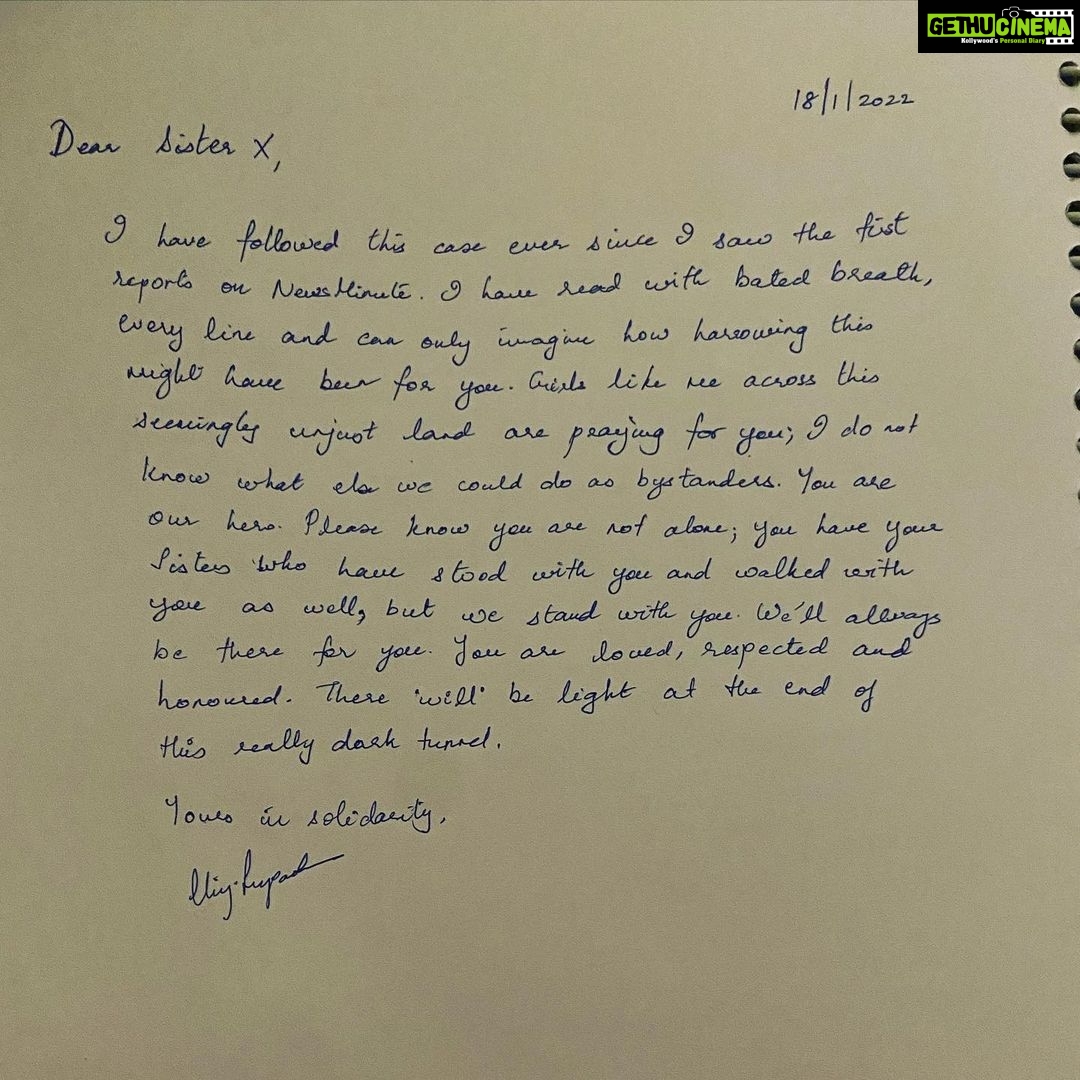 GETHUCINEMA
Kollywood's Personal Diary
18/1/2022
Dear Sister X,
I have followed this case ever since I saw the first
reports on NewsMinute. I have read with bated breath,
every line and can only imagine how harrowing this
might have been for you. Girls like me across this
seemingly unjust land are praying for you; I do not
know what else we could do as bystanders. You are
our hero. Please know you are not alone; you have your
Sisters who have stood with you and walked with
you as well, but we stand with you. We'll always
be there for you. You are loved, respected and
honoured. There 'will' be light at the end of
this really dark tunnel.
Yours in solidarity,